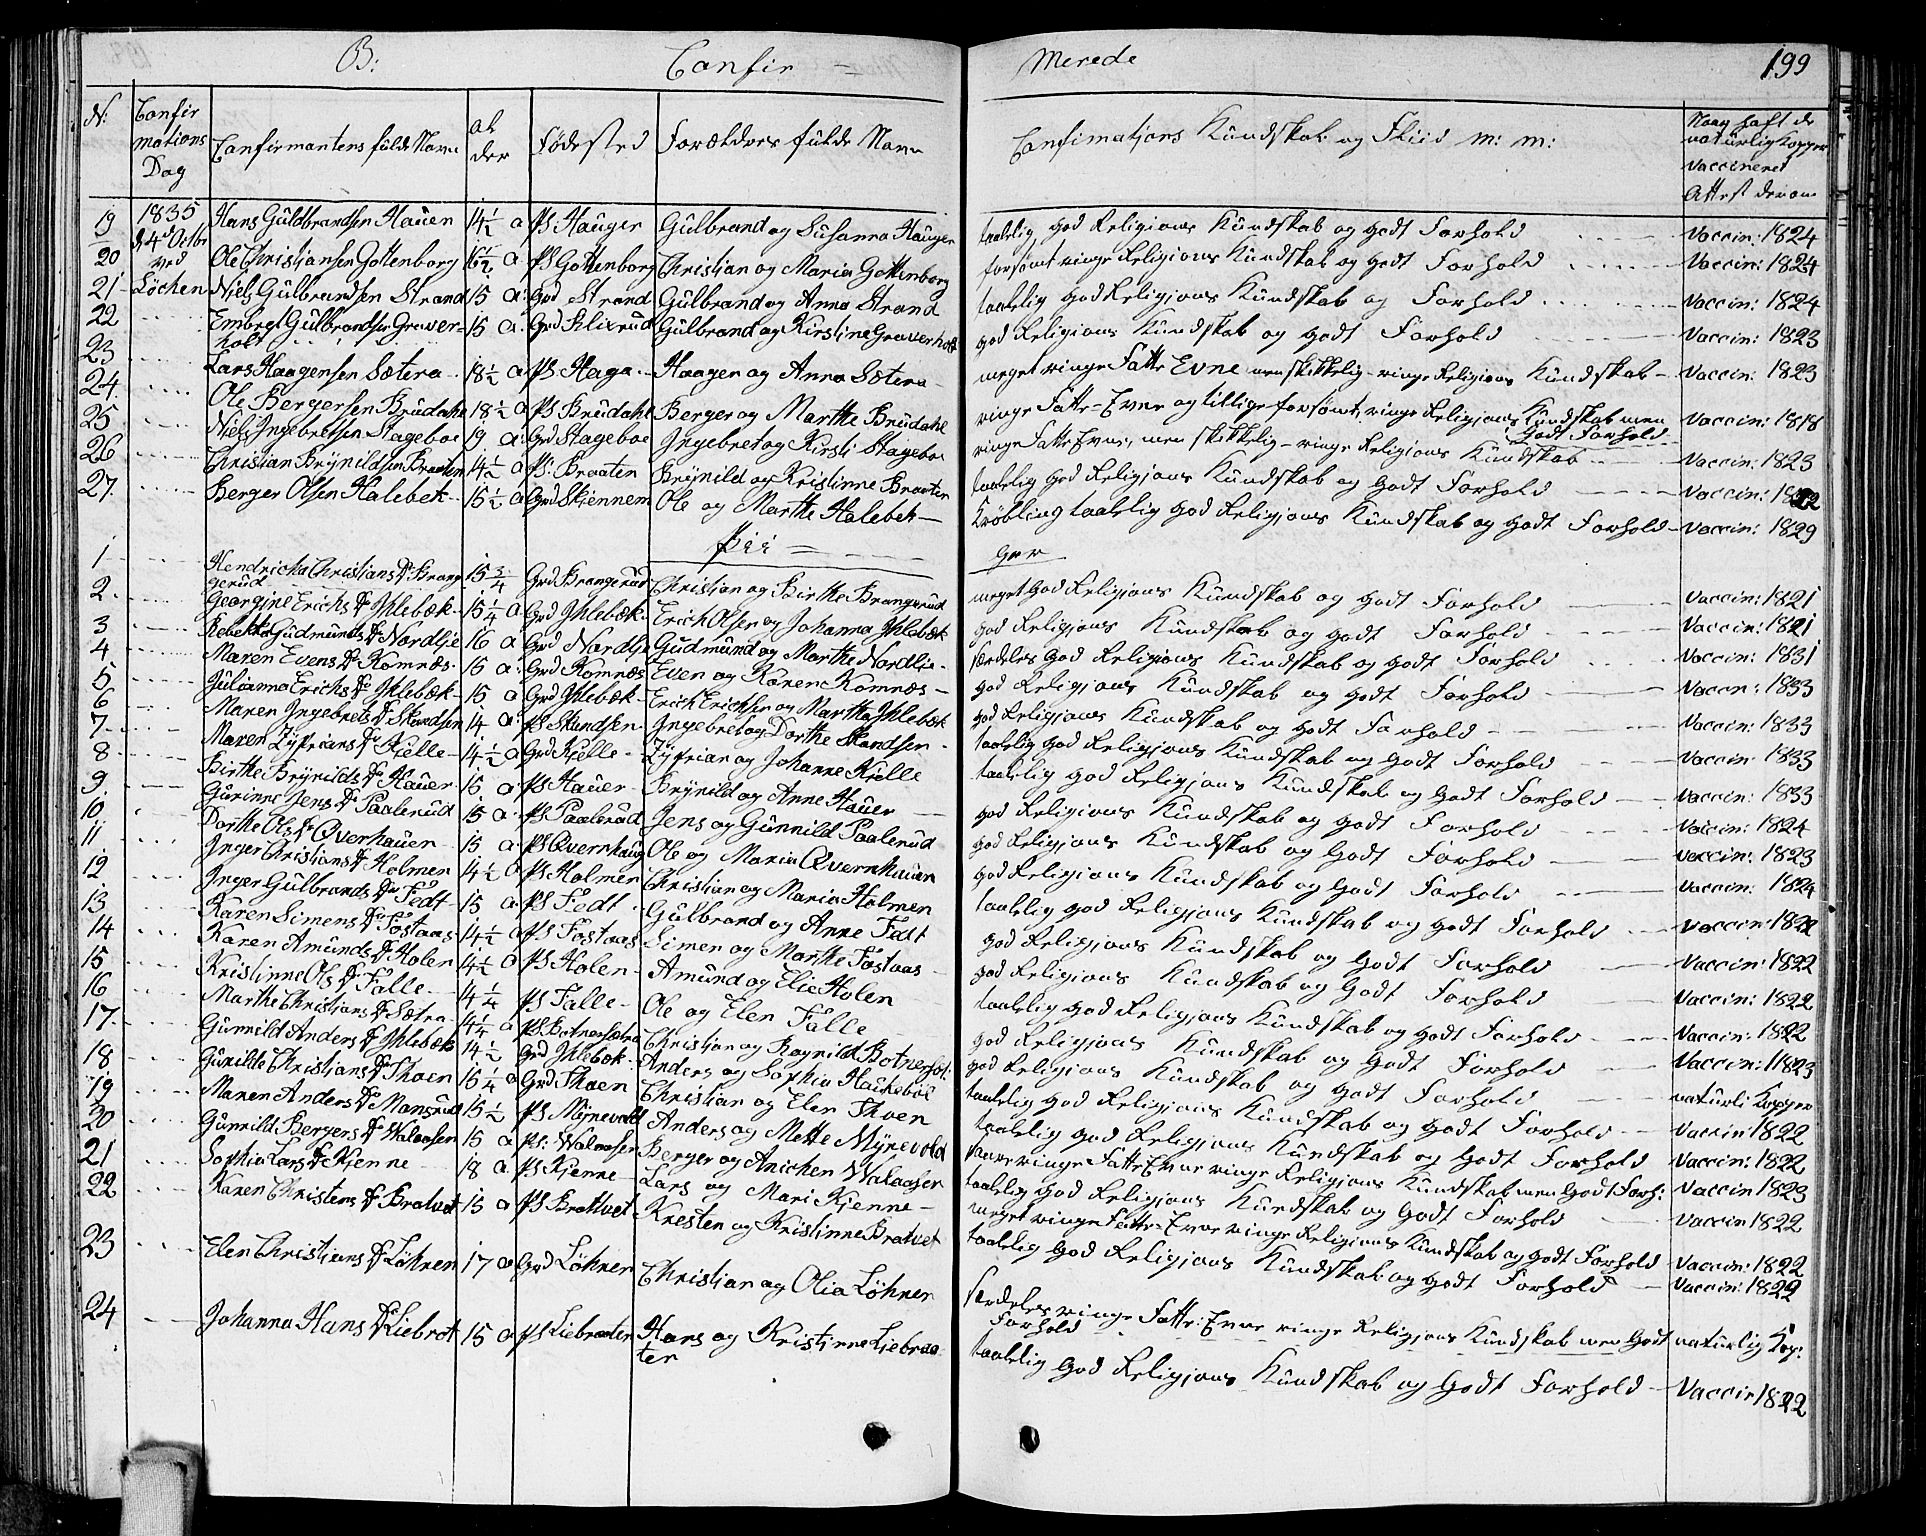 B: Confir = Merede 199
N: Confirmations Dag Confirmantens fulde Navn Alder Fødested Forældres fulde Navn Confirmatjons Kundskab og Fliid m: m: Naar haft de naturlig Kopper vaccineret Attest derom
19 1835 d 4de Octbr Hans Gulbrandsen Hauen 14½ a PS Hauger Gulbrand og Susanna Haugen taalelig god Religions Kundskab og godt Forhold Vaccin: 1824
20 ved Ole Christjansen Gottenborg 16½ a PS Gottenborg Christian og Maria Gottenborg forsømt ringe Religions Kundskab og godt Forhold Vaccin: 1824
21 Lochen Niels Gulbrandsen Strand 15 a: Grd Strand Gulbrand og Anna Strand taalelig god Religjons Kundskab og Forhold Vaccin: 1824
22 Embret Gulbrandsen Graverholt 15 a. Grd Klixrud Gulbrand og Kirstine Graverholt god Religions Kundskab og godt Forhold Vaccin: 1823
23 Lars Haagensen Sætera 18½ a PS: Haga Haagen og Anna Sætera meget ringe Fatte Evne men skikkelig ringe Religions Kundskab Vaccin: 1823
24 Ole Bergersen Brudahl 18½ a PS Brudahl Berger og Marthe Brudahl ringe Fatte-Evne og tillige forsømt, ringe Religjons Kundskab men Godt Forhold Vaccin: 1818
25 Niels Jngebretsen Stageboe 19 a: Grd Stageboe Jngebret og Kirsti Stageboe ringe Fatte Evne, men skikkelig ringe Religions Kundskab Vaccin: 1823
26 Christian Brynildsen Braaten 14½ a PS: Braaten Brynild og Kristinne Braaten taalelig god Religjons Kundskab og Godt Forhold Vaccin: 1822
27. Berger Olsen Halebek 15½ a Grd Skjennem Ole og Marthe Halebek Krøbling taalelig god Religjons Kundskab og Godt Forhold Vaccin: 1829
Pii = ger
1 Hendricha Christians Dr Brangerud 15¾ Grd Brangerud Christian og Birthe Brangerud meget God Religjons Kundskab og godt Forhold Vaccin: 1821
2 Georgine Erichs Dr Jhlebæk 15¼ a Grd Jhlebæk Erich Olsen og Johanna Jhlebæk god Religjons Kundskab og godt Forhold Vaccin: 1821
3 Rebekka Gudmunds Dr Nordlje 16 a Grd Nordlje Gudmund og Marthe Nordlie særdeles god Religions Kundskab og godt Forhold Vaccin: 1831
4 Maren Evens Dr Komnæs 15 a: Grd Komnæs Even og Karen Komnæs god Religjons Kundskab og godt Forhold Vaccin: 1833
5 Julianna Erichs Dr Jhlebæk 15 a Grd Jhlebæk Erich Erichsen og Martha Jhlebæk god Religjons Kundskab og godt Forhold Vaccin: 1833
6 Maren Jngebrets Dr Skandsen 14 a: PS Skandsen Jngebret og Dorthe Skandsen taalelig god Religions Kundskab og godt Forhold Vaccin 1833
7 Maren Zyprians Dr Kjelle 14½ a Grd Kjelle Zyprian og Johanne Kjelle taalelig god Religjons Kundskab og Godt Forhold Vaccin: 1833
8 Birthe Brynilds Dr Hauer 15 a PS Hauer Brynild og Anne Hauer god Religions Kundskab og godt Forhold Vaccin: 1824
9 Gurinne Jens Dr Paalerud 15 a PS Paalerud Jens og Gunnild Paalerud god Religjons Kundskab og Godt Forhold Vaccin: 1823
10 Dorthe Ols Dr Qverhauen 15 a PS Qvernhaug Ole og Maria Qvernhauen god Religions Kundskab og Godt Forhold Vaccin: 1824
11 Jnger Christians Dr Holmen 14½ a PS Holmen Christian og Maria Holmen taalelig god Religjons Kundskab og Godt Forhold Vaccin 1822
12 Jnger Gulbrands Dr Fedt 15 a PS Fedt Gulbrand og Anne Fedt god Religjons Kundskab og Godt Forhold Vaccin: 1822
13 Karen Simens Dr Fostaas 14½ a PS Fostaas Simen og Marthe Fostaas god Religions Kundskab og Godt Forhold Vaccin: 1822
14 Karen Amunds Dr Holen 14½ a PS Holen Amund og Elie Holen taalelig god Religjons Kundskab og Godt Forhold Vaccin: 1822
15 Kristinne Ols Dr Falle 14¼ PS Falle Ole og Elen Falle god Religjons Kundskab og Godt Forhold Vaccin: 1823
16 Marthe Christians Dr Sætra 14¼ a PS Botnersætra Christian og Ragnild Botnersæt: god Religjons Kundskab og Godt Forhold naturli Kopper
17. Gunnild Anders Dr Jhlebæk 14½ Grd Jhlebæk Anders og Sophia Haukeboe taalelig god Religjons Kundskab og Godt Forhold Vaccin 1822
18 Gunilde Christians Dr Skoen 15¼ a Grd Skoen Christian og Elen Skoen taalelig god Religjons Kundskab og Godt Forhold Vaccin: 1822
19 Maren Anders Dr Mansrud 15½ PS Mynevold Anders og Mette Mynevold saare ringe Fatte Evne ringe Religjons Kundskab men Godt Forh: Vaccin 1823
20 Gunnild Bergers Dr Walaasen 15 a PS: Walaasen Berger og Anichen Walaaser taalelig god Religjons Kundskab og Godt Forhold Vaccin 1822
21 Sophia Lars Dr Kjenne 18 a PS Kjenne Lars og Mari Kjenne meget ringe Fatte-Evne ringe Religjons Kundskab og godt Forhold Vaccin: 1822
22 Karen Christens Dr Bratvet 15 a PS Brattvet Kresten og Kristinne Bratvet taalelig God Religjons Kundskab og Godt Forhold Vaccin: 1822
23 Elen Christians Dr Løhren 17 a Grd Løhren Christjan og Olia Løhren særdeles ringe Fatte: Evne ringe Religjons Kundskab men Godt Forhold naturlig Kop:
24 Johanna Hans Dr Liebrot 15 a PS Liebraaten Hans og Kristinne Liebraaten taalelig God Religjons Kundskab og Godt Forhold Vaccin 1822